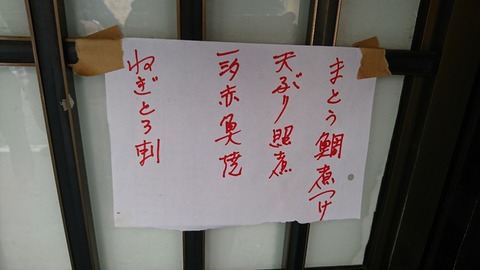 まとう鯛煮つけ
天ぶり照煮
一汐赤魚焼
ねぎとろ刺